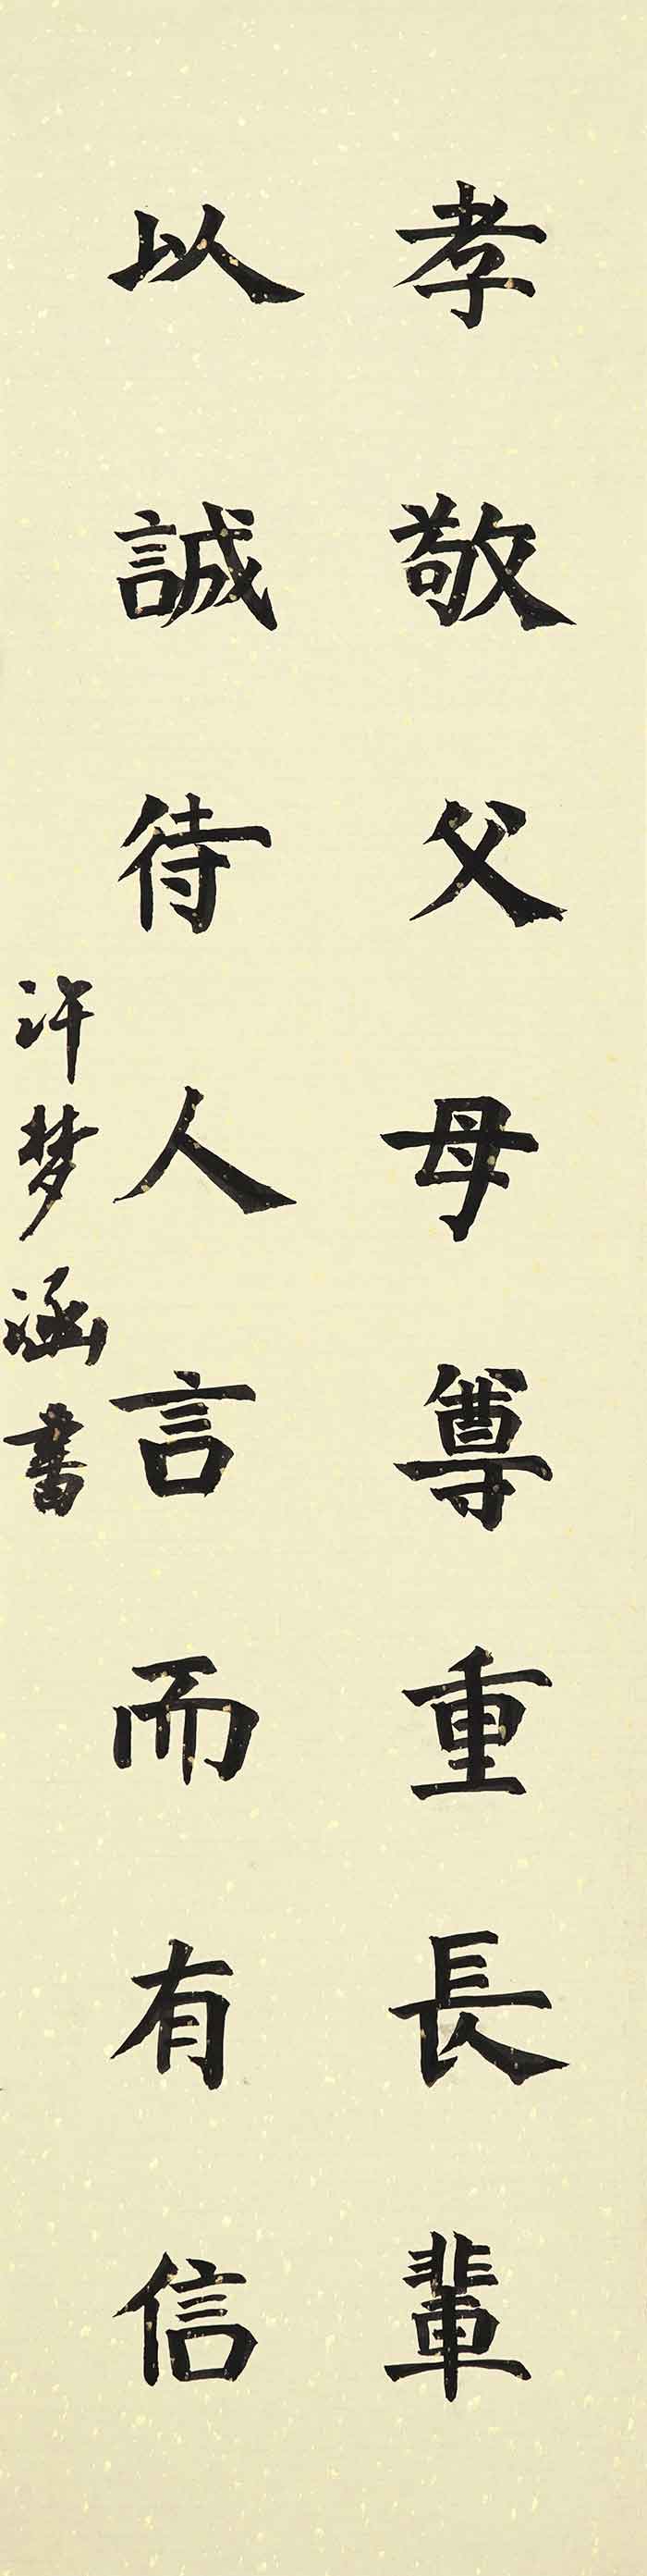 孝敬父母尊重長輩
以誠待人言而有信
许梦涵書